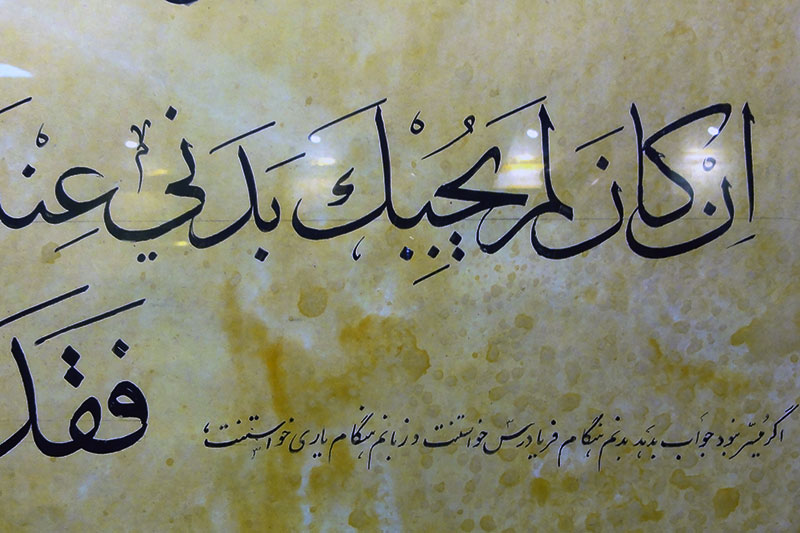 اِنْ كانَ لَم يُجِبْكَ بَدَني عِنْ
فَقَد
اگر میسّر نبود جواب بدهد بدنم هنگام فریادرس خواستنت و زبانم هنگام یاری خواستنت،